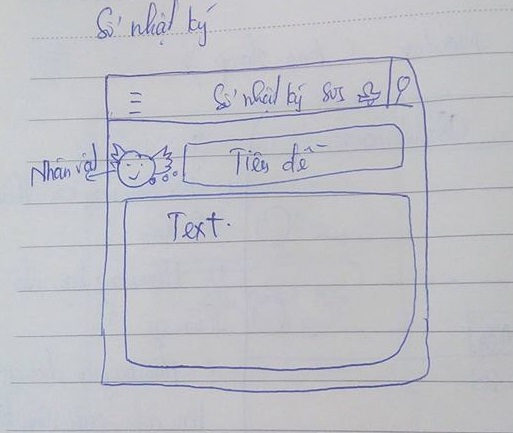 Sổ nhật ký
Sổ nhật ký SOS
Nhân vật
Tiêu đề
Text.